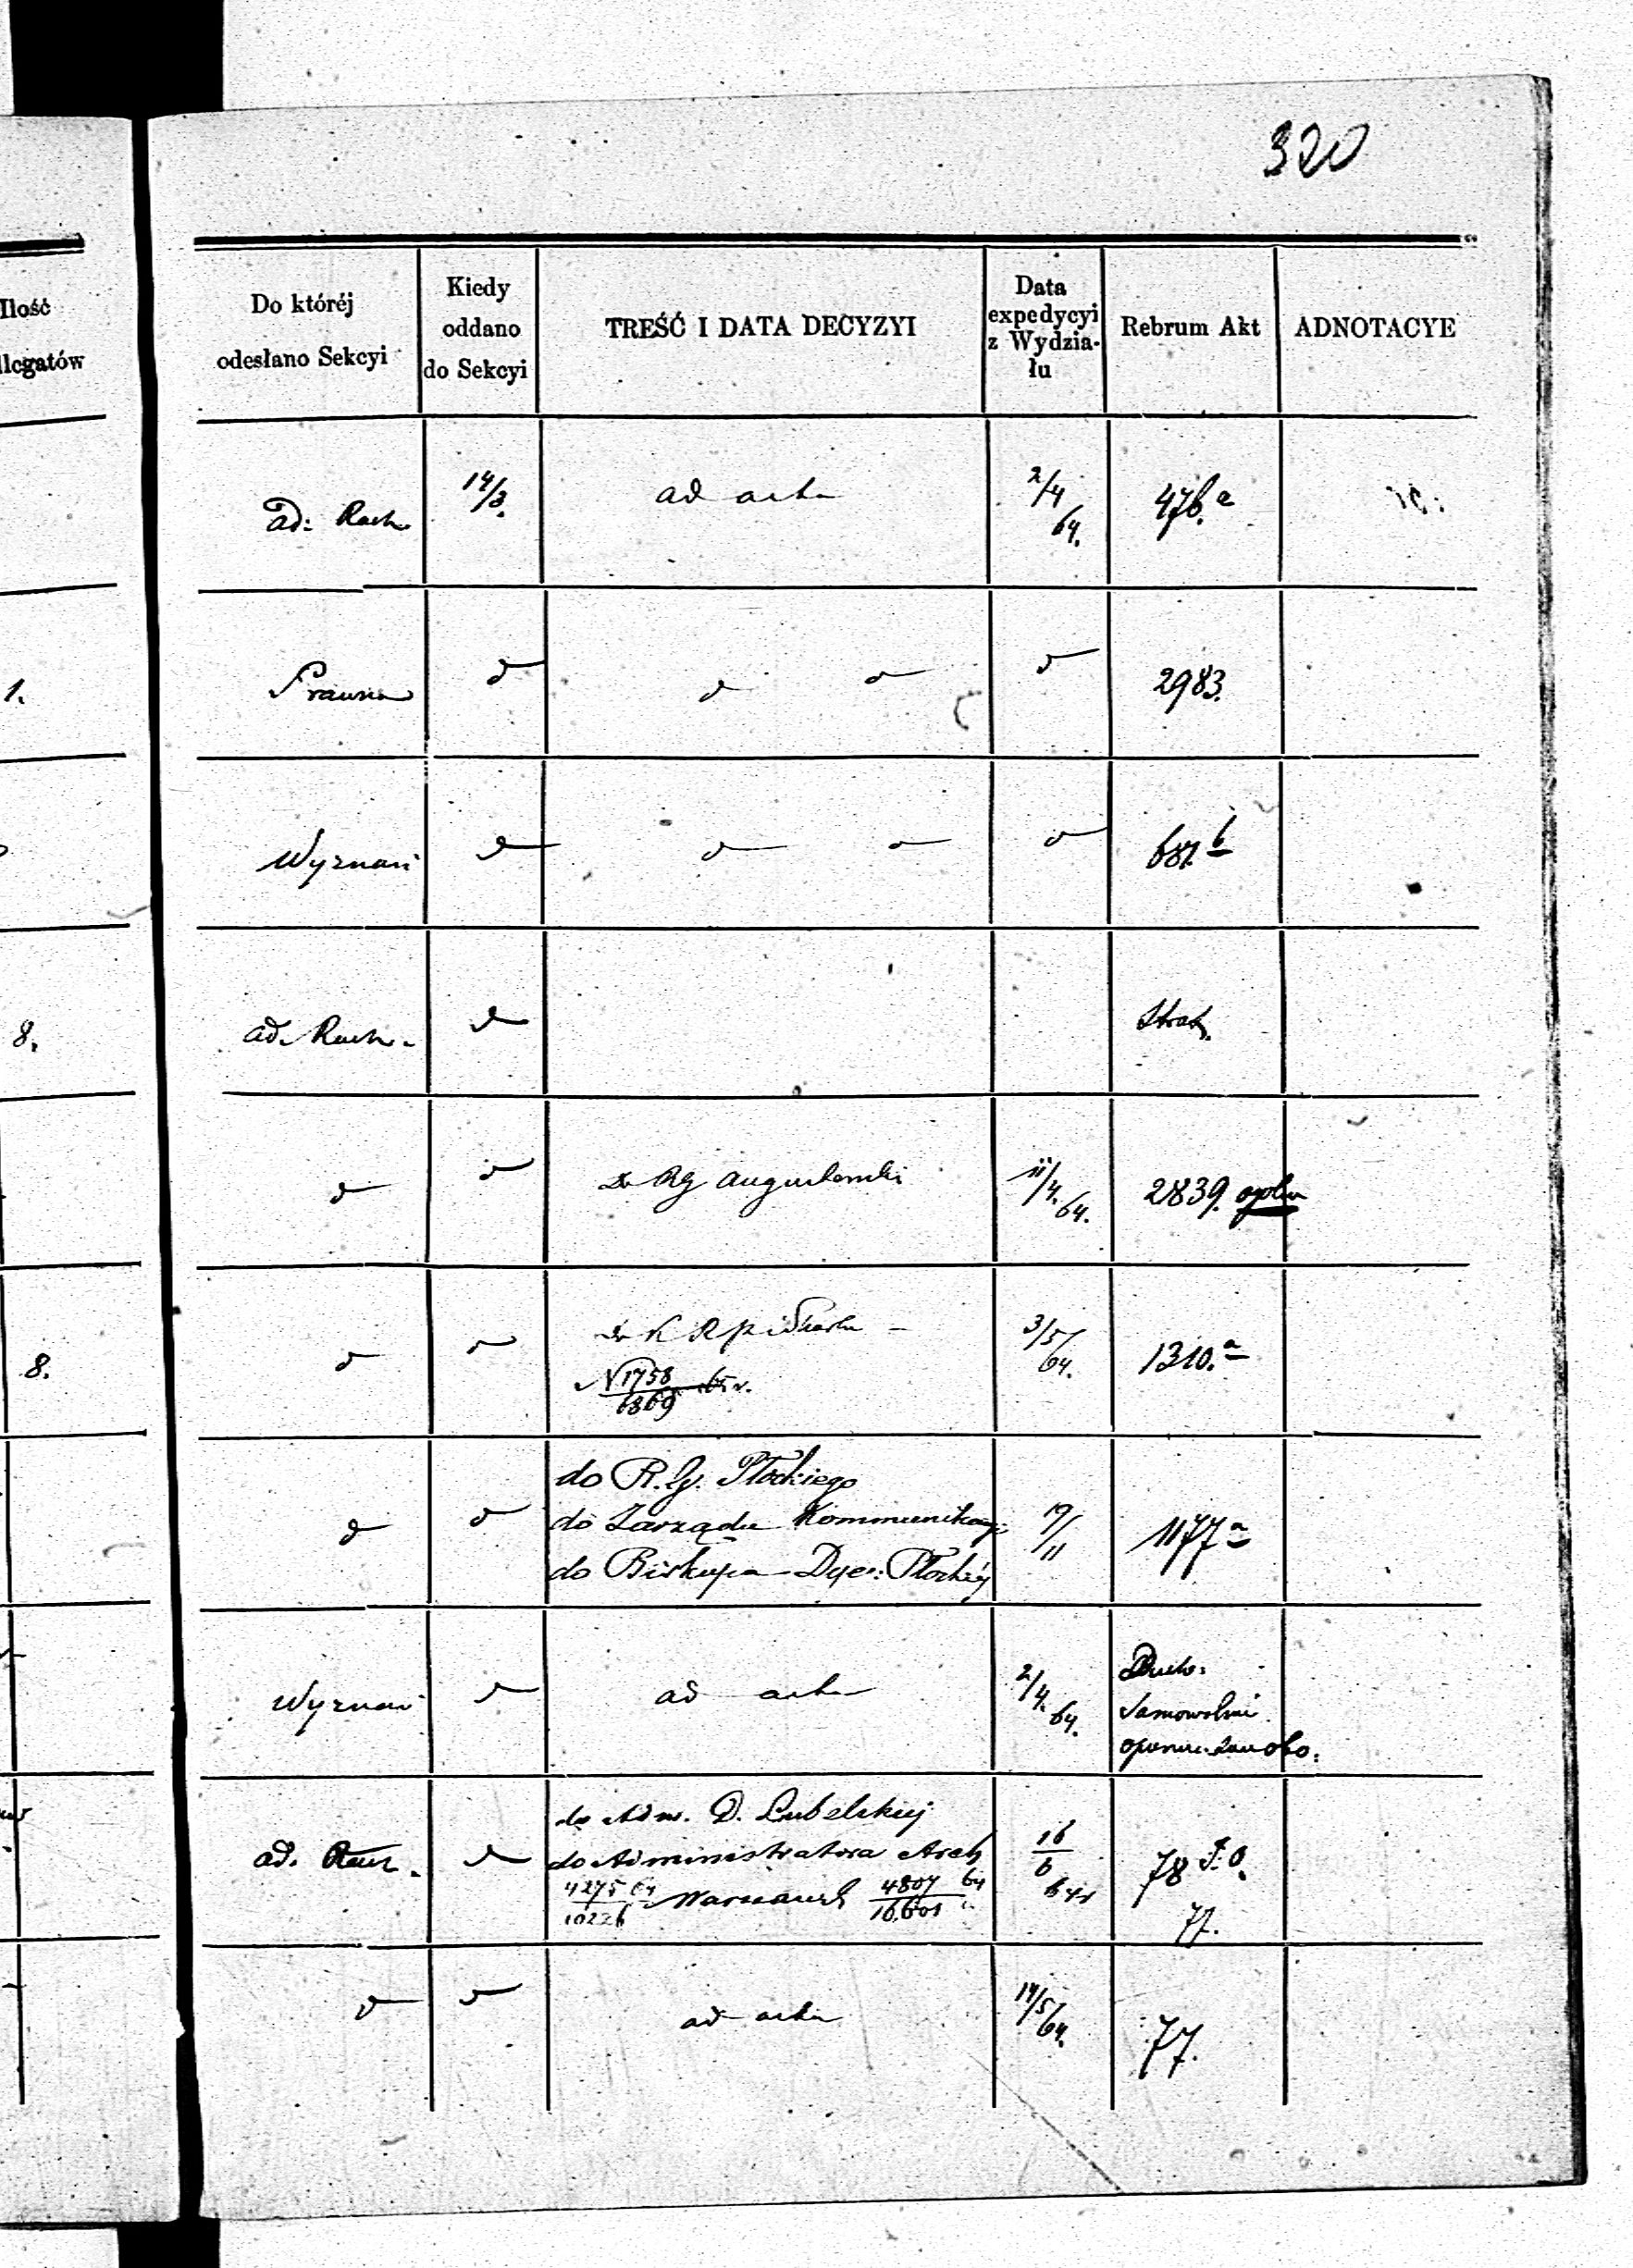 320
Ilość
llegatów
Do któréj
odesłano Sekcyi
Kiedy
oddano
do Sekcyi
TREŚĆ I DATA DECYZYI
Data
expedycyi
z Wydzia-
łu
Rebrum Akt
ADNOTACYE
ad: Rach.
14/3.
ad acta
2/4 64.
476.a
1.
Prawna
2983.
Wyznań
687. b
8.
ad. Rach.
Do RG Augustowski
11/4. 64.
2839. ogoln
8.
do K R P i Skarbu
N 1758/6869 65 r.
3/5 64.
1310.a
do R. G. Płockiego
do Zarządu Kommunikacyi
do Biskupa Dyec: Płockiéj
19/11
1177 a
Wyznań
ad acta
2/4. 64.
Duch:
Samowolni
ad. Rach.
do Adm. D. Lubelskiej
do Administratora Arch
4275/10226 64 Warszawsk 4807/16601 64
16/6 64 r
78
77.
ad acta
14/5 64.
77.